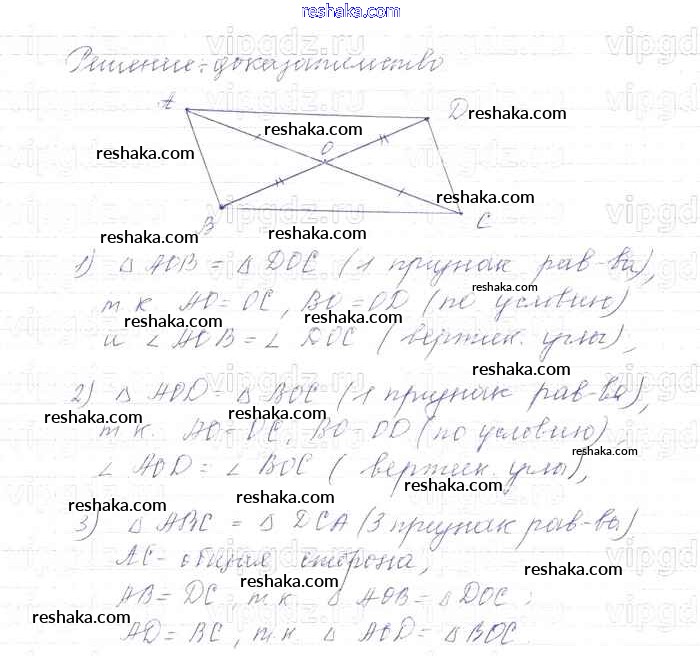 reshaka.com
vipgdz.ru
Решение: доказательство
A
D
O
B
C
reshaka.com
1) △ AOB = △ DOC (1 признак рав-ва),
т.к. AO = OC, BO = OD (по условию)
и ∠ AOB = ∠ DOC (вертик. углы),
2) △ AOD = △ BOC (1 признак рав-ва),
т.к. AO = OC, BO = OD (по условию),
∠ AOD = ∠ BOC (вертик. углы),
3) △ ABC = △ DCA (3 признак рав-ва)
AC - общая сторона,
AB = DC, т.к. △ AOB = △ DOC;
AD = BC, т.к. △ AOD = △ BOC